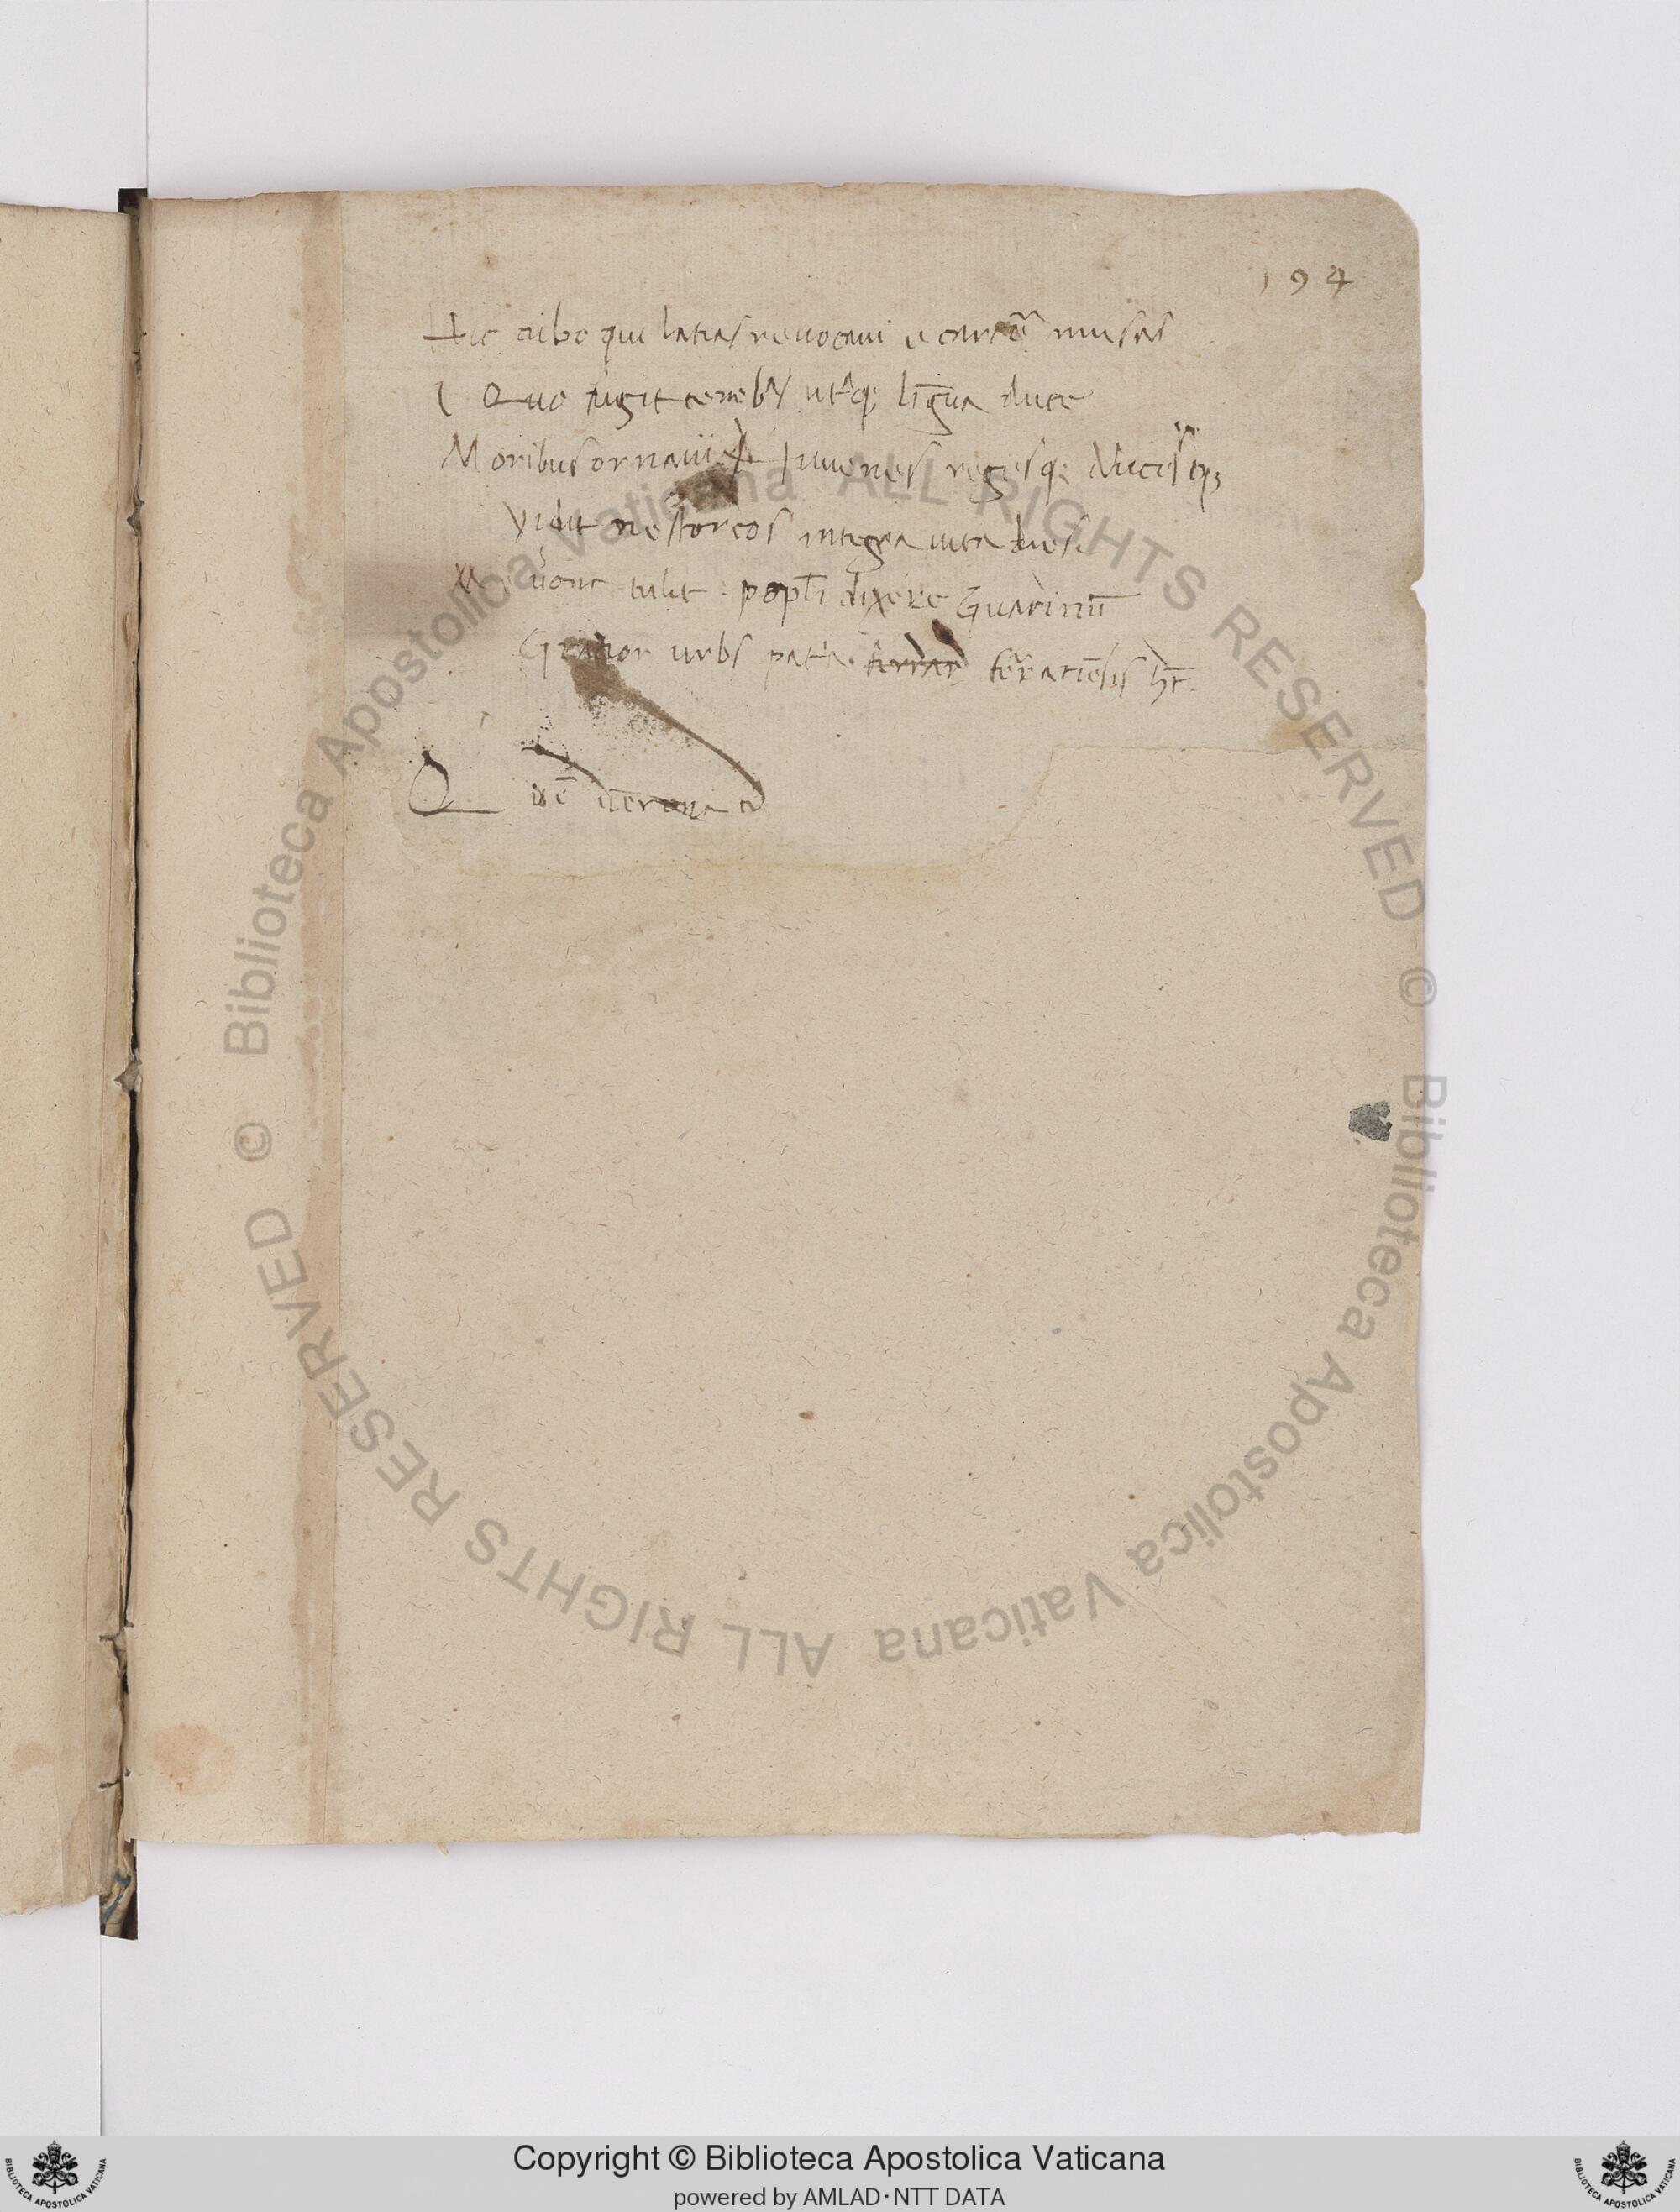 194
Hic cubo qui latias revocavi e carcē musas
Quo fugit tenebras utq; līgua duce
Moribus ornavi iuvenes regesq; ducesq;
Vidit nestoreos integra vita dies.
tulit popli dixere Guarinū
Gratior urbs patria ferrar ferrariēsis h̄t.
Q uē verona
© Biblioteca Apostolica Vaticana ALL RIGHTS RESERVED © Biblioteca Apostolica Vaticana ALL RIGHTS RESERVED
Copyright © Biblioteca Apostolica Vaticana
powered by AMLAD·NTT DATA
BIBLIOTECA APOSTOLICA VATICANA
BIBLIOTECA APOSTOLICA VATICANA